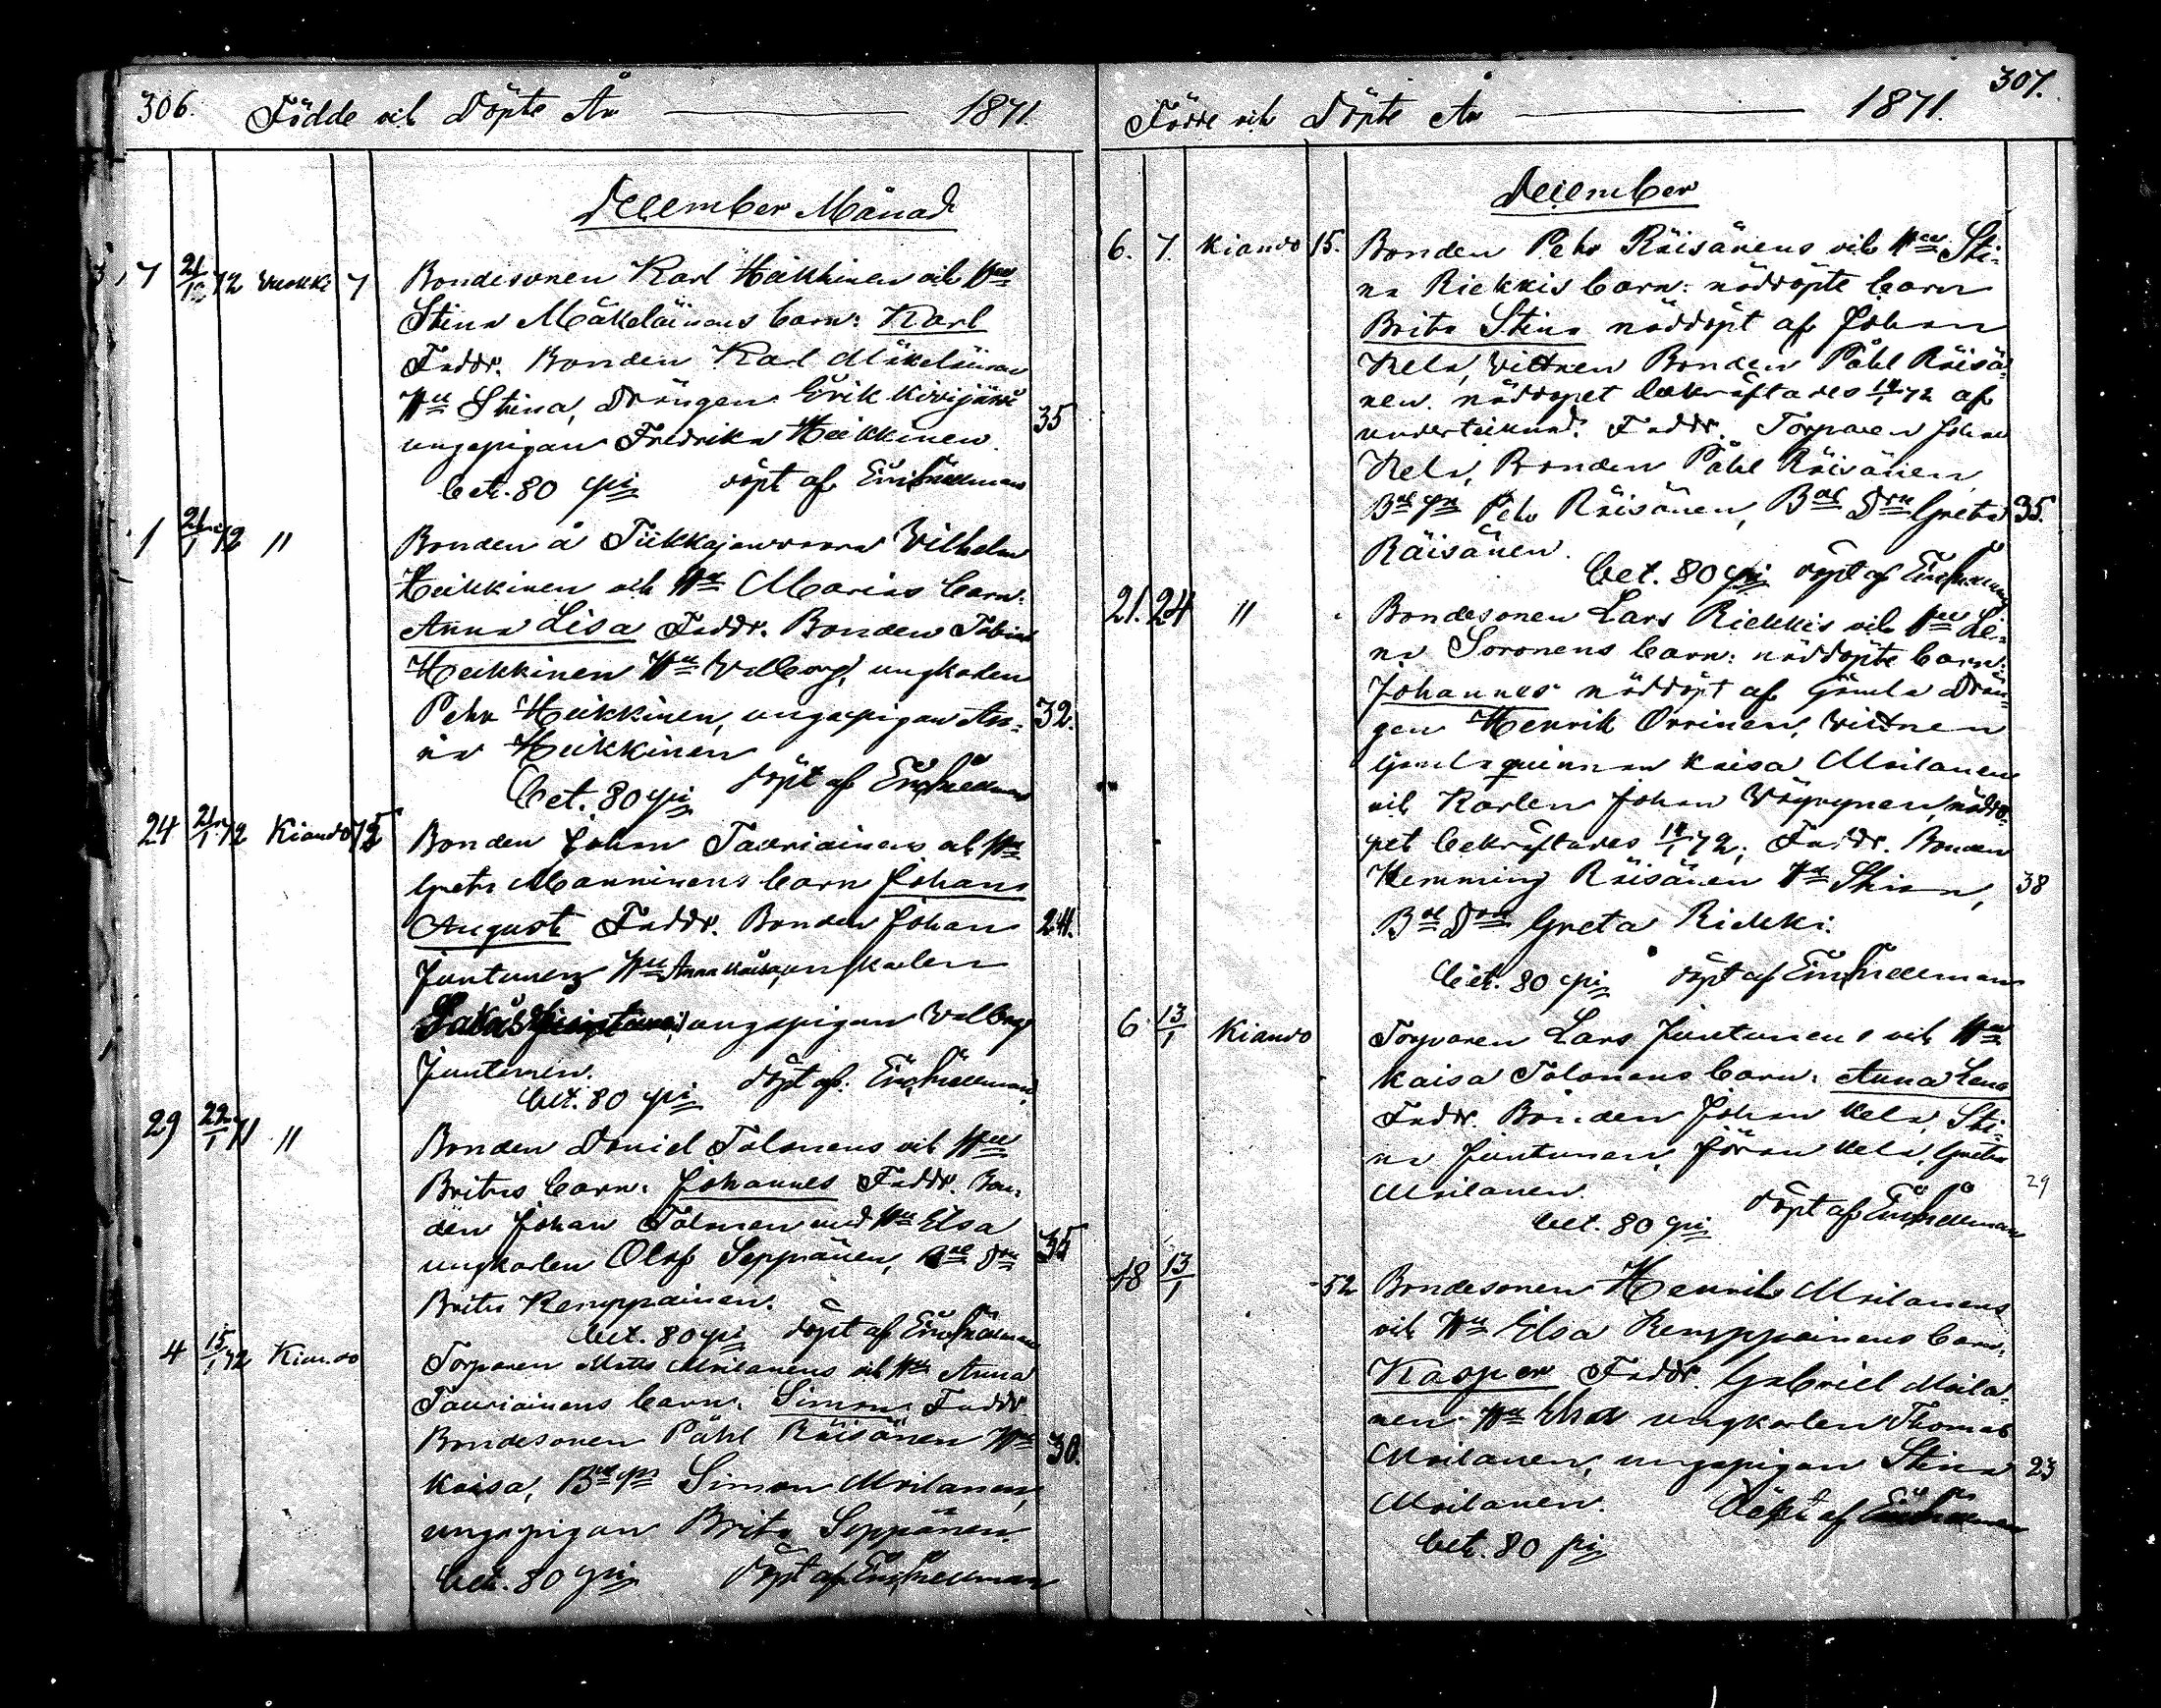 306. Födde och Döpte År 1871.
December Månad
7 21/1 72 Vuokki 7 Bondesonen Karl Heikkinen och Hu
Stina Mäkeläinens barn: Karl
Faddr. Bonden Karl Mäkeläinen
Hu Stina, Drängen Erik Kirijärvi
ungapigan Fredrika Heikkinen. 35
bet. 80 pi döpt af Snellman
1 21/1 72 " Bonden å Tiikkajanvaara Vilhelm
Heikkinen och Hu Marias barn:
Anna Lisa Faddr. Bonden Tobias
Heikkinen Hu Valborg, ungkarlen
Pehr Heikkinen, ungapigan An- 32.
na Heikkinen
bet. 80 pi döpt af Snellman
24 21/1 72 Kiando 72 Bonden Johan Tauriainens och Hu
Greta Manninens barn Johan
August Faddr. Bonden Johan 24.
Juntunen Hu Anna Kaisa, ungkarlen
ungapigan Valborg
Juntunen.
bet. 80 pi döpt af. Snellman
29 22/1 71 " Bonden Daniel Tolonens och Hu
Britas barn: Johannes Faddr. Bon-
den Johan Tolonen med Hu Elsa
ungkarlen Olof Seppänen, Bde Dtr 35
Brita Kemppainen.
bet. 80 pi döpt af Snellman
4 15/1 72 Kiando Torparen Matts Moilanens och Hu Anna
Tauriainens barn. Simon Faddr
Bondesonen Påhl Räisänen Hu 30.
Kaisa, Simon Moilanen,
ungapigan Brita Seppänen
bet. 80 pi döpt af Snellman
307.
Födde och Döpte År 1871.
December
6. 7. Kiando 15. Bonden Pehr Räisänens och Hu Sti-
na Riekkis barn: nöddöpte barn
Brita Stina nöddöpt af Johan
Kela, vittnen Bonden Påhl Räisä-
nen. nöddopet bekräftades 14/1 72 af
undertecknad. Faddr. Torparen Johan
Kela, Bonden Påhl Räisänen
Pehr Räisänen, Bde Dtr Greta 35.
Räisänen.
bet. 80 pi döpt af Snellman
21. 24 " Bondesonen Lars Riekkis och Hu Le-
na Soronens barn: nöddöpte barn:
Johannes nöddöpt af Gamla Drän-
gen Henrik Orrinen, vittnen
Gamla qvinnan Kaisa Moilanen
och Karlen Johan Väyrynen, nöddo-
pet bekräftades 14/1 72; Faddr. Bonden
Hemming Räisänen Hu Stina, 38
Bde Dtr Greta Riekki.
bet. 80 pi döpt af Snellman
6 13/1 Kiando Torparen Lars Juntunens och Hu
Kaisa Tolonens barn: Anna Lena
Faddr. Bonden Johan Kela, Sti-
na Juntunen, Jöran Kela, Greta
Moilanen. 29
bet. 80 pi döpt af Snellman
18 13/1 52 Bondesonen Henrik Moilanens
och Hu Elsa Kemppainens barn:
Kasper Faddr. Gabriel Moila-
nen Hu Elsa ungkarlen Thomas
Moilanen, ungapigan Stina 23
Moilanen. Döpt af Snellman
bet. 80 pi